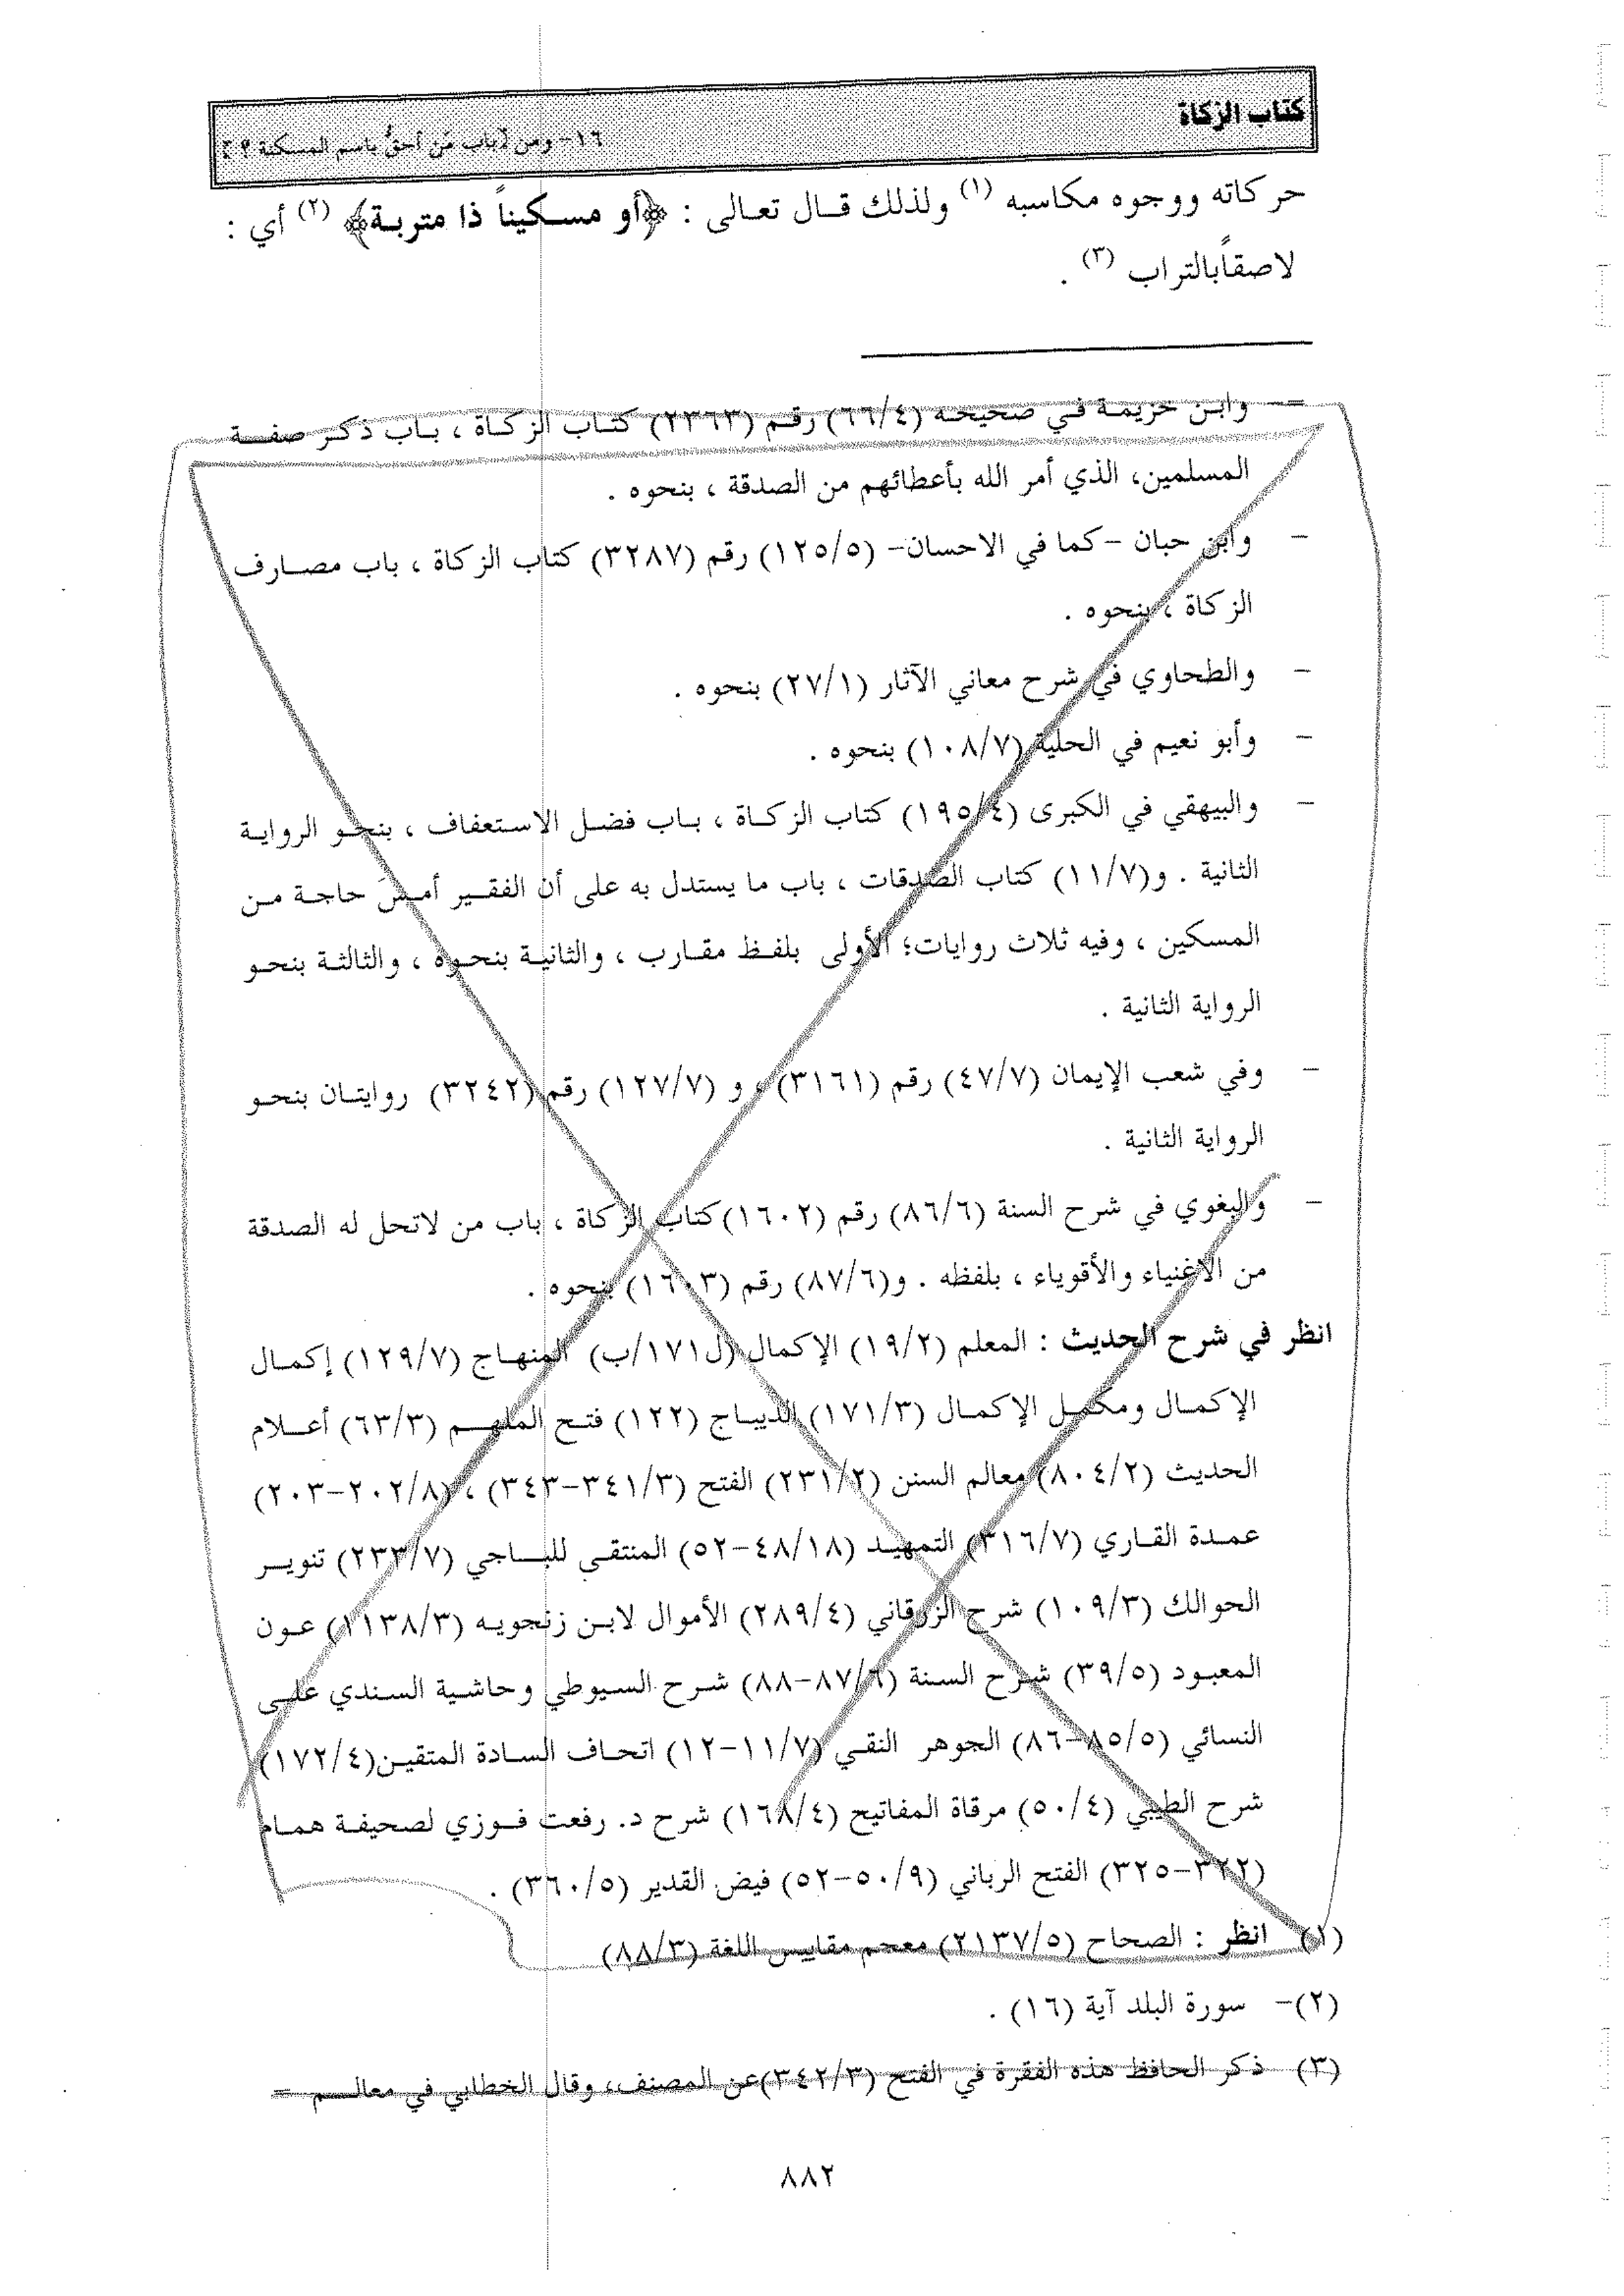 كتاب الزكاة
١٦- ومن [باب مَن أحقُّ باسم المسكنة ؟ ]
حركاته ووجوه مكاسبه (١) ولذلك قال تعالى : ﴿أو مسكيناً ذا متربة﴾ (٢) أي :
لاصقاًبالتراب (٣) .
=- وابن خزيمة في صحيحه (٦٦/٤) رقم (٢٣٦٣) كتاب الزكاة ، باب ذكر صفة
المسلمين، الذي أمر الله بأعطائهم من الصدقة ، بنحوه .
- وابن حبان -كما في الاحسان- (١٢٥/٥) رقم (٣٢٨٧) كتاب الزكاة ، باب مصارف
الزكاة ، بنحوه .
- والطحاوي في شرح معاني الآثار (٢٧/١) بنحوه .
- وأبو نعيم في الحلية (١٠٨/٧) بنحوه .
- والبيهقي في الكبرى (١٩٥/٤) كتاب الزكاة ، باب فضل الاستعفاف ، بنحو الرواية
الثانية . و(١١/٧) كتاب الصدقات ، باب ما يستدل به على أن الفقير أمسَ حاجة من
المسكين ، وفيه ثلاث روايات؛ الأولى بلفظ مقارب ، والثانية بنحوه ، والثالثة بنحو
الرواية الثانية .
- وفي شعب الإيمان (٤٧/٧) رقم (٣١٦١) ، و (١٢٧/٧) رقم (٣٢٤٢) روايتان بنحو
الرواية الثانية .
- والبغوي في شرح السنة (٨٦/٦) رقم (١٦٠٢)كتاب الزكاة ، باب من لاتحل له الصدقة
من الاغنياء والأقوياء ، بلفظه . و(٨٧/٦) رقم (١٦٠٣) بنحوه .
انظر في شرح الحديث : المعلم (١٩/٢) الإكمال (ل١٧١/ب) المنهاج (١٢٩/٧) إكمال
الإكمال ومكمل الإكمال (١٧١/٣) الديباج (١٢٢) فتح الملهم (٦٣/٣) أعلام
الحديث (٨٠٤/٢) معالم السنن (٢٣١/٢) الفتح (٣٤١/٣-٣٤٣) ، (٢٠٢/٨-٢٠٣)
عمدة القاري (٣١٦/٧) التمهيد (٤٨/١٨-٥٢) المنتقى للباجي (٢٣٣/٧) تنوير
الحوالك (١٠٩/٣) شرح الزرقاني (٢٨٩/٤) الأموال لابن زنجويه (١١٣٨/٣) عون
المعبود (٣٩/٥) شرح السنة (٨٧/٦-٨٨) شرح السيوطي وحاشية السندي على
النسائي (٨٥/٥-٨٦) الجوهر النقي (١١/٧-١٢) اتحاف السادة المتقين(١٧٢/٤)
شرح الطيبي (٥٠/٤) مرقاة المفاتيح (١٦٨/٤) شرح د. رفعت فوزي لصحيفة همام
(٣٢٢-٣٢٥) الفتح الرباني (٥٠/٩-٥٢) فيض القدير (٣٦٠/٥) .
(١) انظر : الصحاح (٢١٣٧/٥) معجم مقاييس اللغة (٨٨/٣)
(٢)- سورة البلد آية (١٦) .
(٣) ذكر الحافظ هذه الفقرة في الفتح (٣٤٢/٣)عن المصنف، وقال الخطابي في معالم =
٨٨٢